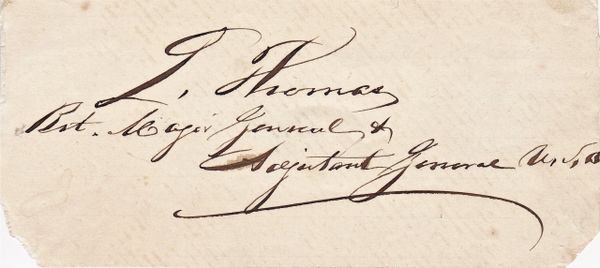 L. Thomas
Bvt. Major General &
Adjutant General U.S.A